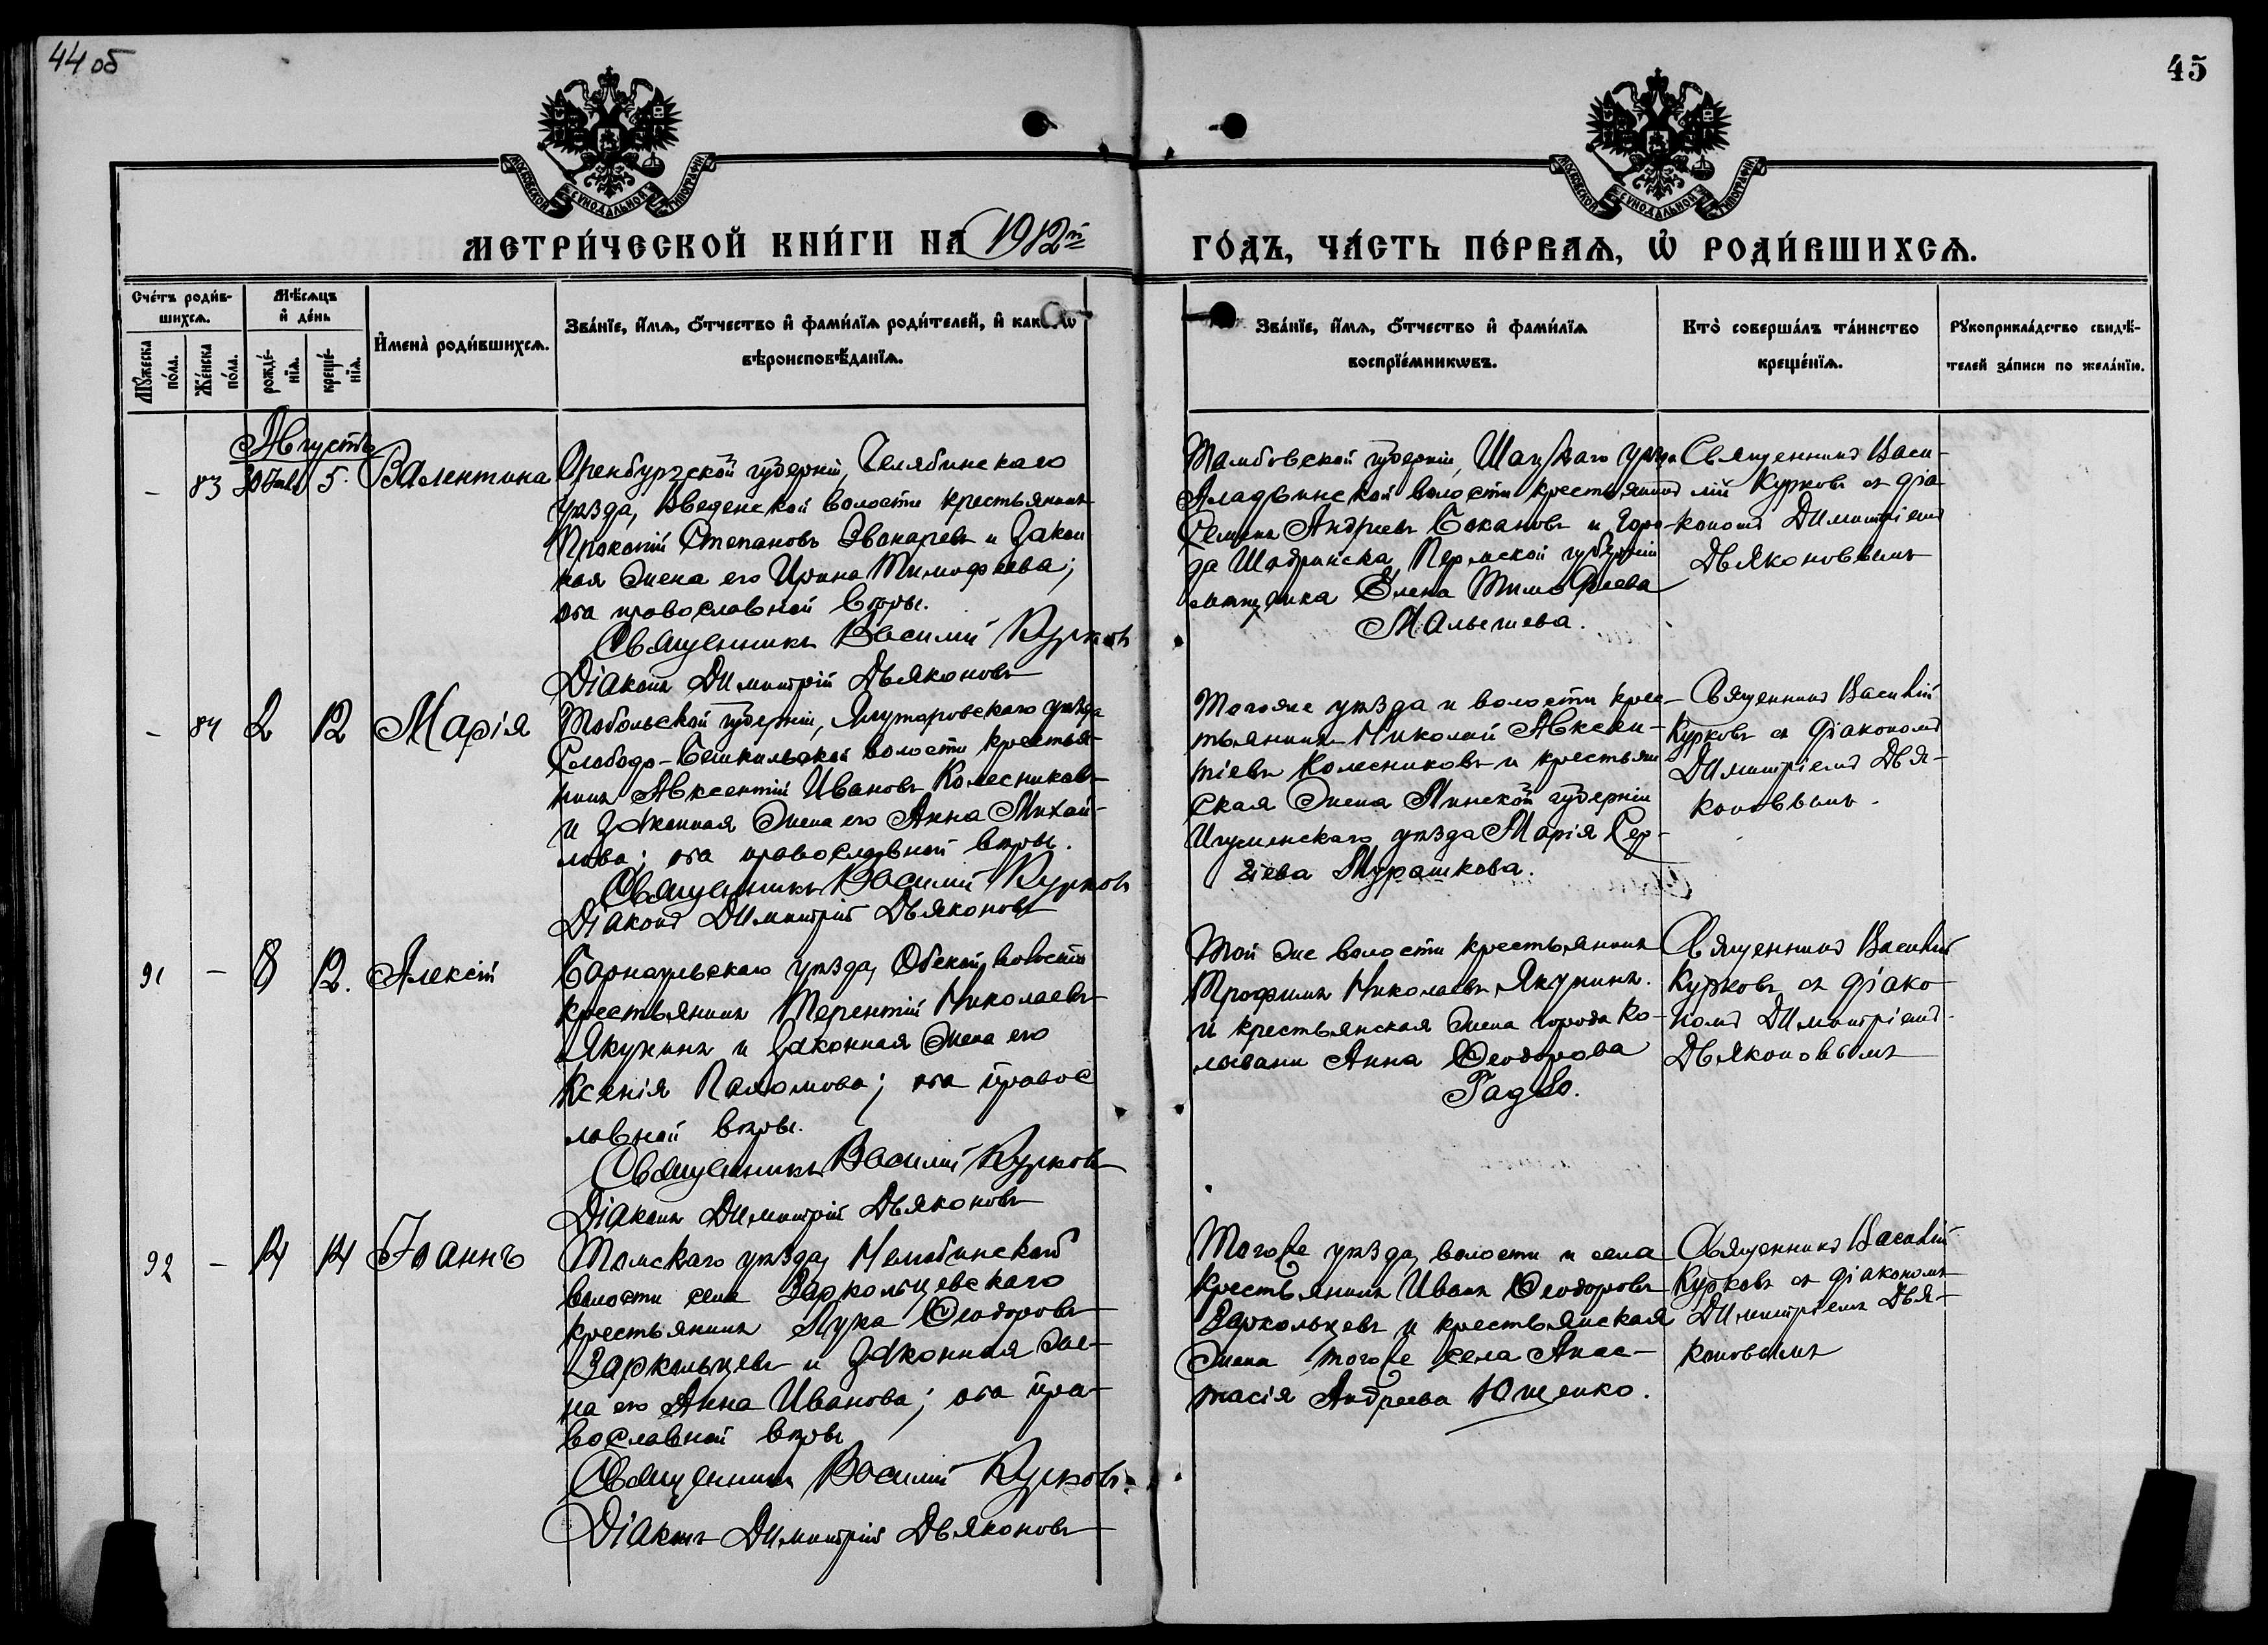 44 об
45
МОСКОВСКОЙ СУНОДАЛЬНОЙ ТИПОГРАФІИ
МОСКОВСКОЙ СУНОДАЛЬНОЙ ТИПОГРАФІИ
МЕТРИ́ЧЕСКОЙ КНИ́ГИ НА 1912й
ГО́ДЪ, ЧА́СТЬ ПЕ́РВАѦ, Ѿ РОДИ́ВШИХСѦ.
Сче́тъ роди́в-
шихсѧ.
Мꙋ́жеска
по́ла.
Же́нска
по́ла.
Мѣ́сѧцъ
и҆ де́нь
рожде́-
нїѧ.
креще́-
нїѧ.
И҆мена̀ роди́вшихсѧ.
Зва́нїе, и҆́мѧ, ѻ҆́тчество и҆ фами́лїѧ роди́телей, и҆
вѣроисповѣ́данїѧ.
Зва́нїе, и҆́мѧ, ѻ҆́тчество и҆ фами́лїѧ
воспрїе́мникѡвъ.
Кто̀ соверша́лъ та́инство
креще́нїѧ.
Рꙋкоприкла́дство свидѣ́-
телей за́писи по жела́нїю.
Августъ
- 83 30 5. Валентина
Оренбургской губерніи, Челябинскаго
уѣзда, Введенской волости крестьянинъ
Прокопій Степановъ Звонаревъ и закон
ная жена его Ирина Тимофеева;
оба православной вѣры.
Священникъ Василий Курковъ
Діаконъ Димитрій Дьяконовъ
Тамбовской губерніи, Шацкаго уѣзда
Аладьинской волости крестьянинъ
Семенъ Андреевъ Боканов и горо-
да Шадринска, Пермской губерніи
мѣщанка Елена Тимофеева
Малышева.
Священникъ Васи-
лій Курковъ съ діа-
кономъ Димитріемъ
Дьяконовымъ
- 84 2 12 Марія
Тобольской губерніи, Ялуторовскаго уѣзда
Слободо-Бешкильской волости крестья-
нинъ Авксентій Ивановъ Колесниковъ
и законная жена его Анна Михай-
лова; оба православной вѣры.
Священникъ Василий Курковъ
Діаконъ Димитрій Дьяконовъ
Тогоже уѣзда и волости крес-
тьянинъ Николай Авксен-
тіевъ Колесниковъ и крестьян
ская жена Минской губерніи
Игуменскаго уѣзда Марія Сер-
гіева Мурашкова.
Священникъ Василій
Курковъ съ діакономъ
Димитріемъ Дья-
коновымъ.
91 - 8 12. Алексій
Барнаульскаго уѣзда, Обской волости
крестьянинъ Терентій Николаевъ
Якунинъ и законная жена его
Ксенія Пахомова; оба правос
лавной вѣры.
Священникъ Василий Курковъ
Діаконъ Димитрій Дьяконовъ
Той же волости крестьянинъ
Трофимъ Николаевъ Якунинъ.
и крестьянская жена города Ко-
лывани Анна Ѳеодорова
Священникъ Василій
Курковъ съ діако
номъ Димитріемъ
Дьяконовымъ
92 - 14 14 Іоаннъ
Томскаго уѣзда, Нелюбинской
волости села Заркольцевскаго
крестьянинъ Лука Ѳеодоровъ
Заркольцевъ и законная же-
на его Анна Иванова; оба пра-
вославной вѣры
Священникъ Василий Курковъ.
Діаконъ Димитрій Дьяконовъ
Тогоже уѣзда, волости и села
крестьянинъ Иванъ Ѳеодоровъ
Заркольцевъ и крестьянская
жена тогоже села Анас-
тасія Андреева Ющенко.
Священникъ Василій
Курковъ съ діакономъ
Димитріемъ Дья-
коновымъ